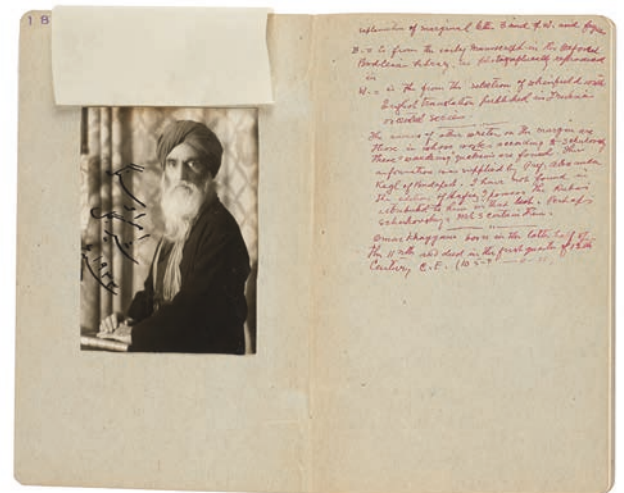 18
explanation of marginal letter B and of W. and figures
B. = is from the early manuscript in the Oxford
Bodleian Library, as photographically reproduced
in
W. = is the from the selection of Whinfield with
English translation published in Trubner's
oriental series.
The names of other writers on the margin are
those in whose works according to Schukovsky
these "wandering" quatrains are found. This
information was supplied by Prof. Alexander
Kegl of Budapest. I have not found in
the edition of Hafiz I possess the Rubai
attributed to him in that book. Perhaps
Schukovsky's MSS contain them.
Omar Khayyam born in the latter half of
the 11th and died in the first quarter of 12th
Century C.E. (105-?